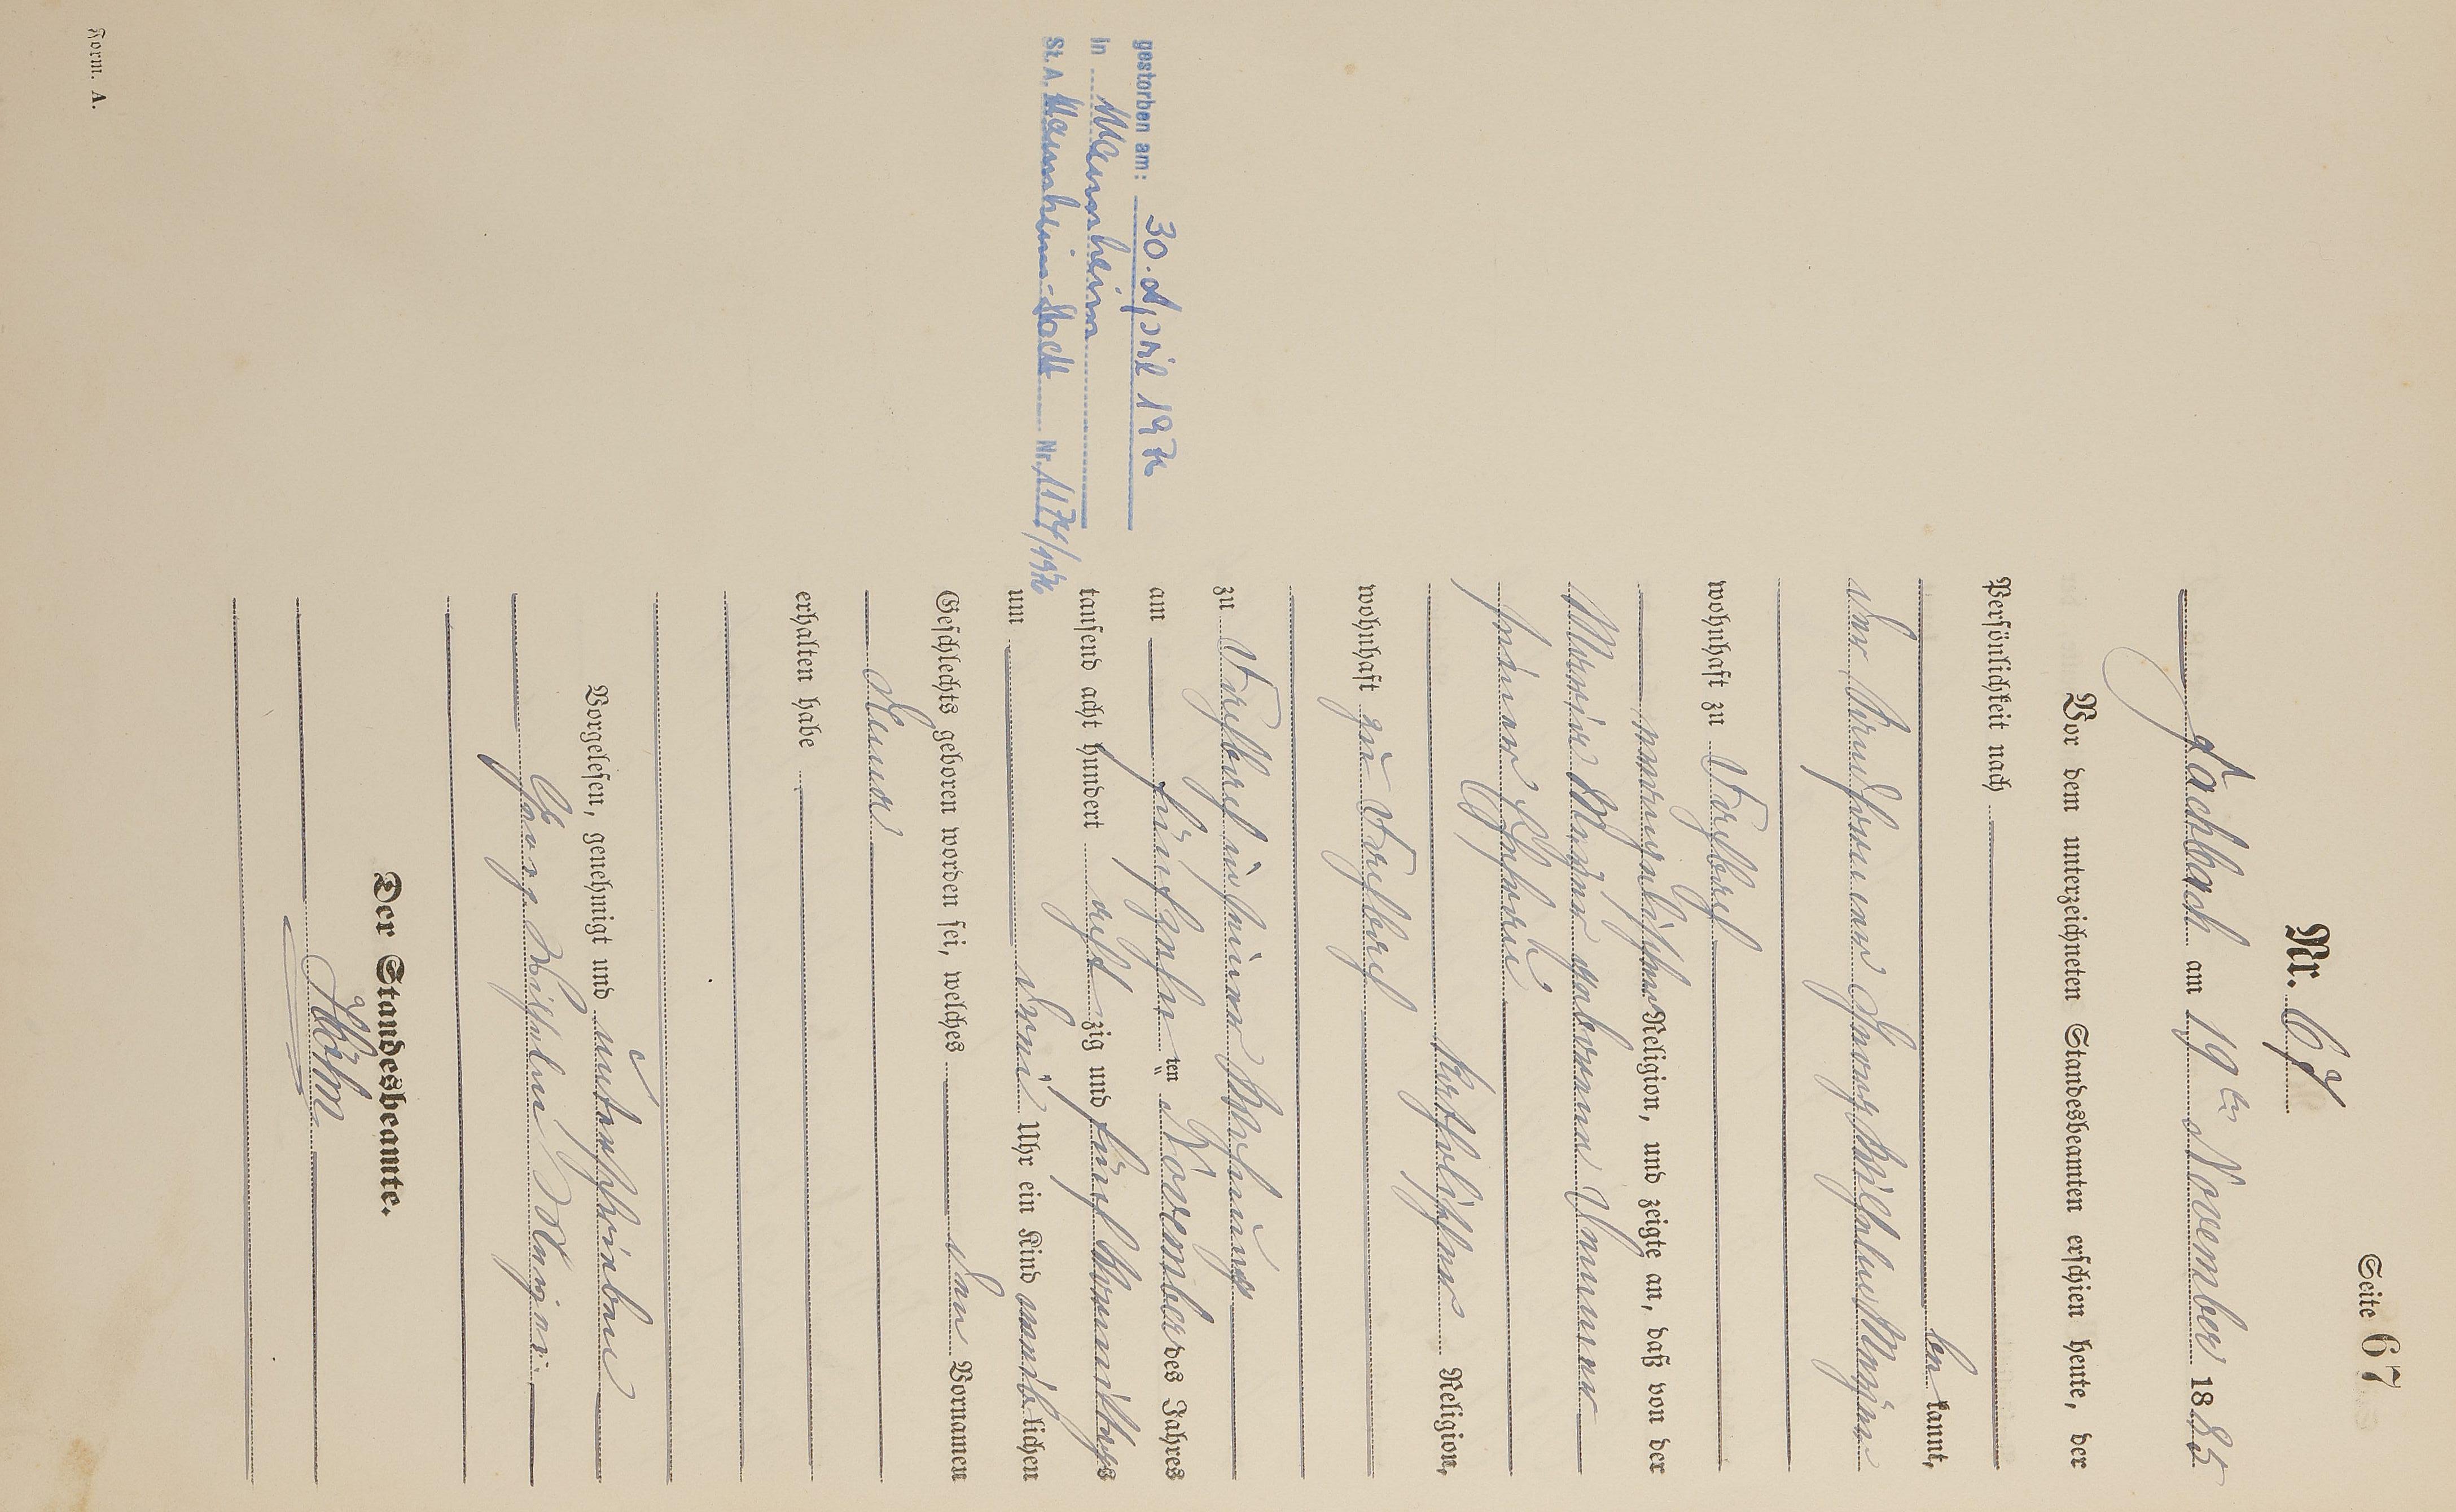 Seite 67
Nr. 67
Fachbach am 19ten November 1885
Vor dem unterzeichneten Standesbeamten erschien heute, der
Persönlichkeit nach
be kannt,
der
wohnhaft zu Fachbach
evangelischer Religion, und zeigte an, daß von der
Maria geborene
seiner Ehefrau
katholischer Religion,
wohnhaft zu Fachbach
zu Fachbach in seiner Wohnung
am fünfzehnten November des Jahres
tausend acht hundert acht zig und fünf Vormittags
um drei Uhr ein Kind weiblichen
Geschlechts geboren worden sei, welches den Vornamen
Anna
erhalten habe
Vorgelesen, genehmigt und unterschrieben
Georg Wilhelm
Der Standesbeamte.
gestorben am: 30. April 1976
in Mannheim
St. A. Mannheim-Stadt Nr. 1174/1976
Form. A.